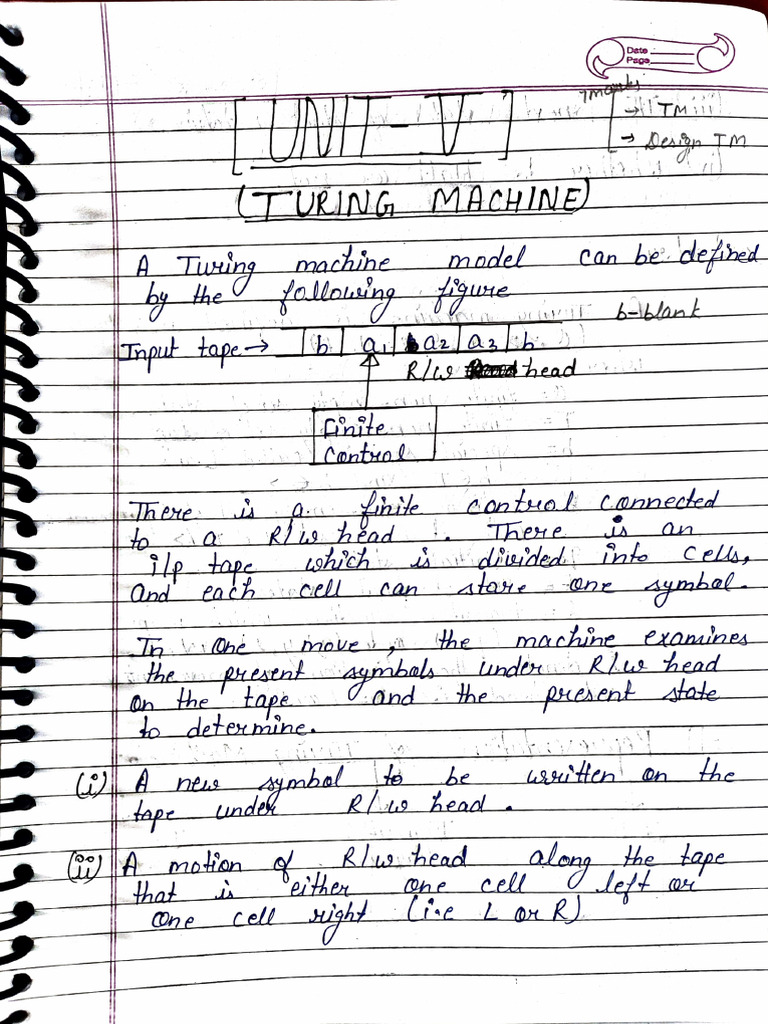 Date
Page
7 marks
→ TM
→ Design TM
[UNIT-V]
(TURING MACHINE)
A Turing machine model can be defined
by the following figure
b-blank
Input tape→ b a1 a2 a3 b
R/W head
Finite
Control
There is a finite control connected
to a R/W head. There is an
i/p tape which is divided into cells,
and each cell can store one symbol.
In one move, the machine examines
the present symbols under R/W head
on the tape and the present state
to determine.
(i) A new symbol to be written on the
tape under R/W head.
(ii) A motion of R/W head along the tape
that is either one cell left or
one cell right (i.e L or R)